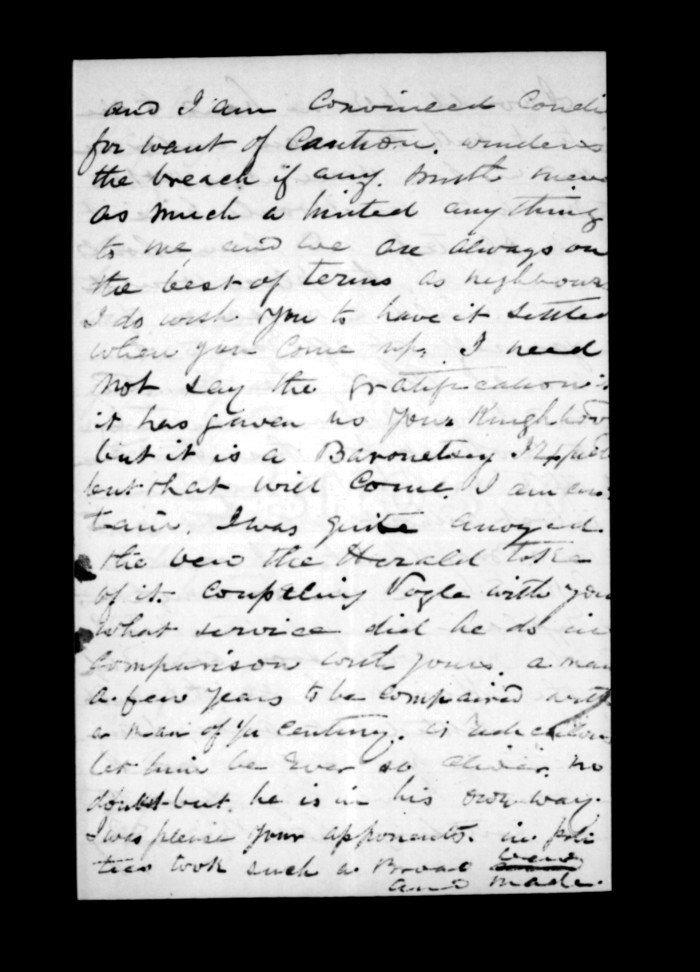 and I am convinced Condi
for want of Caution. widens
the breach if any. Smith never
as much a hinted anything
to me, and we are always on
the best of terms as neighbours
I do wish you to have it settled
when you come up. I need
not say the gratification
it has given us your Knighthoo
but it is a Baronetsey I expect
but that will Come I am cer
tain. I was quite anoyed
the vew the Herald take
of it. Coupleing Vogle with you
What service did he do in
Comparison with yours. a man
a few years to be compaired with
a man of ¼ Century. is
let him be ever so clever. no
doubt but. he is in his own way.
I was please your apponents. in poli
tics took such a Broad vew
and made.